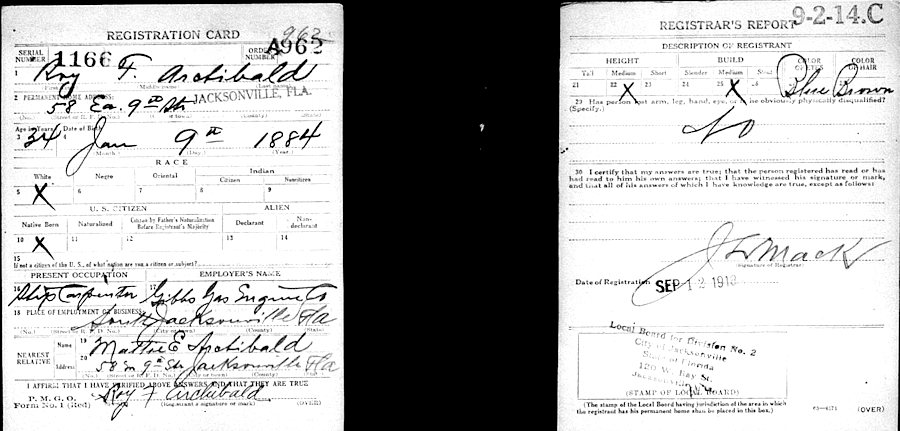 REGISTRATION CARD
963
SERIAL NUMBER 1166 ORDER NUMBER A963
1 Roy F. Archibald
2 PERMANENT HOME ADDRESS:
58 Ea. 9th St. JACKSONVILLE, FLA.
Age in Years Date of Birth
3 34 4 Jan 9th 1884
(Month.) (Day.) (Year.)
RACE
White Negro Oriental Indian
Citizen Noncitizen
5 X 6 7 8 9
U. S. CITIZEN ALIEN
Native Born Naturalized Citizen by Father's Naturalization Before Registrant's Majority Declarant Non-declarant
10 X 11 12 13 14
15
If not a citizen of the U. S., of what nation are you a citizen or subject?
PRESENT OCCUPATION EMPLOYER'S NAME
16 Ship Carpenter 17 Gibbs Gas Engine Co
18 PLACE OF EMPLOYMENT OR BUSINESS:
South Jacksonville Fla
(No.) (Street or R. F. D. No.) (City or town) (County) (State)
NEAREST RELATIVE Name 19 Mattie E Archibald
Address 20 58 9th St Jacksonville Fla
(No.) (Street or R. F. D. No.) (City or town) (County) (State)
I AFFIRM THAT I HAVE VERIFIED ABOVE ANSWERS AND THAT THEY ARE TRUE
P. M. G. O.
Form No. 1 (Red) Roy F Archibald
(Registrant's signature or mark) (OVER)
REGISTRAR'S REPORT 9-2-14.C
DESCRIPTION OF REGISTRANT
HEIGHT BUILD COLOR OF EYES COLOR OF HAIR
Tall Medium Short Slender Medium Stout
21 22 X 23 24 25 X 26 Blue Brown
29 Has person lost arm, leg, hand, eye, or is he obviously physically disqualified?
(Specify.)
No
30 I certify that my answers are true; that the person registered has read or has
had read to him his own answers; that I have witnessed his signature or mark,
and that all of his answers of which I have knowledge are true, except as follows:
Mack
(Signature of Registrar)
Date of Registration SEP 12 1918
Local Board for Division No. 2
City of Jacksonville
State of Florida
120 W. Bay St.
Jacksonville
(STAMP OF LOCAL BOARD)
(The stamp of the Local Board having jurisdiction of the area in which
the registrant has his permanent home shall be placed in this box.)
(OVER)